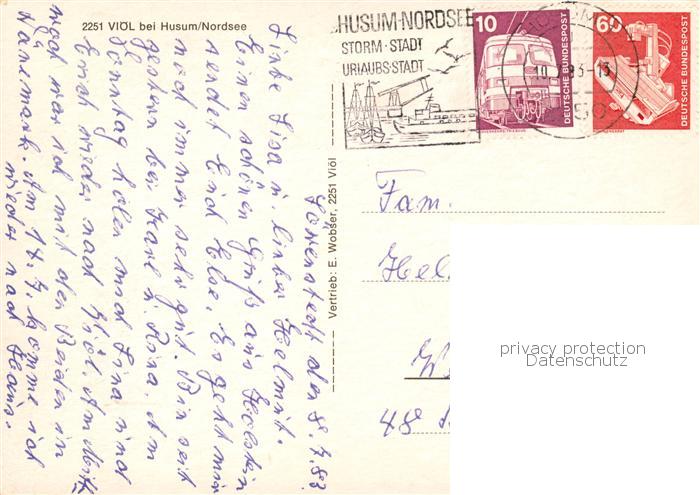 2251 VIÖL bei Husum/Nordsee
HUSUM-NORDSEE
STORM·STADT
URLAUBS·STADT
10
DEUTSCHE BUNDESPOST
60
DEUTSCHE BUNDESPOST
Vertrieb: E. Wobser, 2251 Viöl
Löwenstedt den 8.7.83
Liebe Lisa u. lieber Helmut.
Einen schönen Gruß aus Holstein
sendet Euch Else. Es geht mir
noch immer sehr gut. Bin seit
gestern bei Karl u. Rosa. Am
Sonntag holen mich Lena und
Erich wieder nach Viöl. Am Mittw.
noch war ich mit den Beiden in
Dänemark. Am 14.7. komme ich
wieder nach Haus.
Fam.
Hel
W
48
privacy protection
Datenschutz